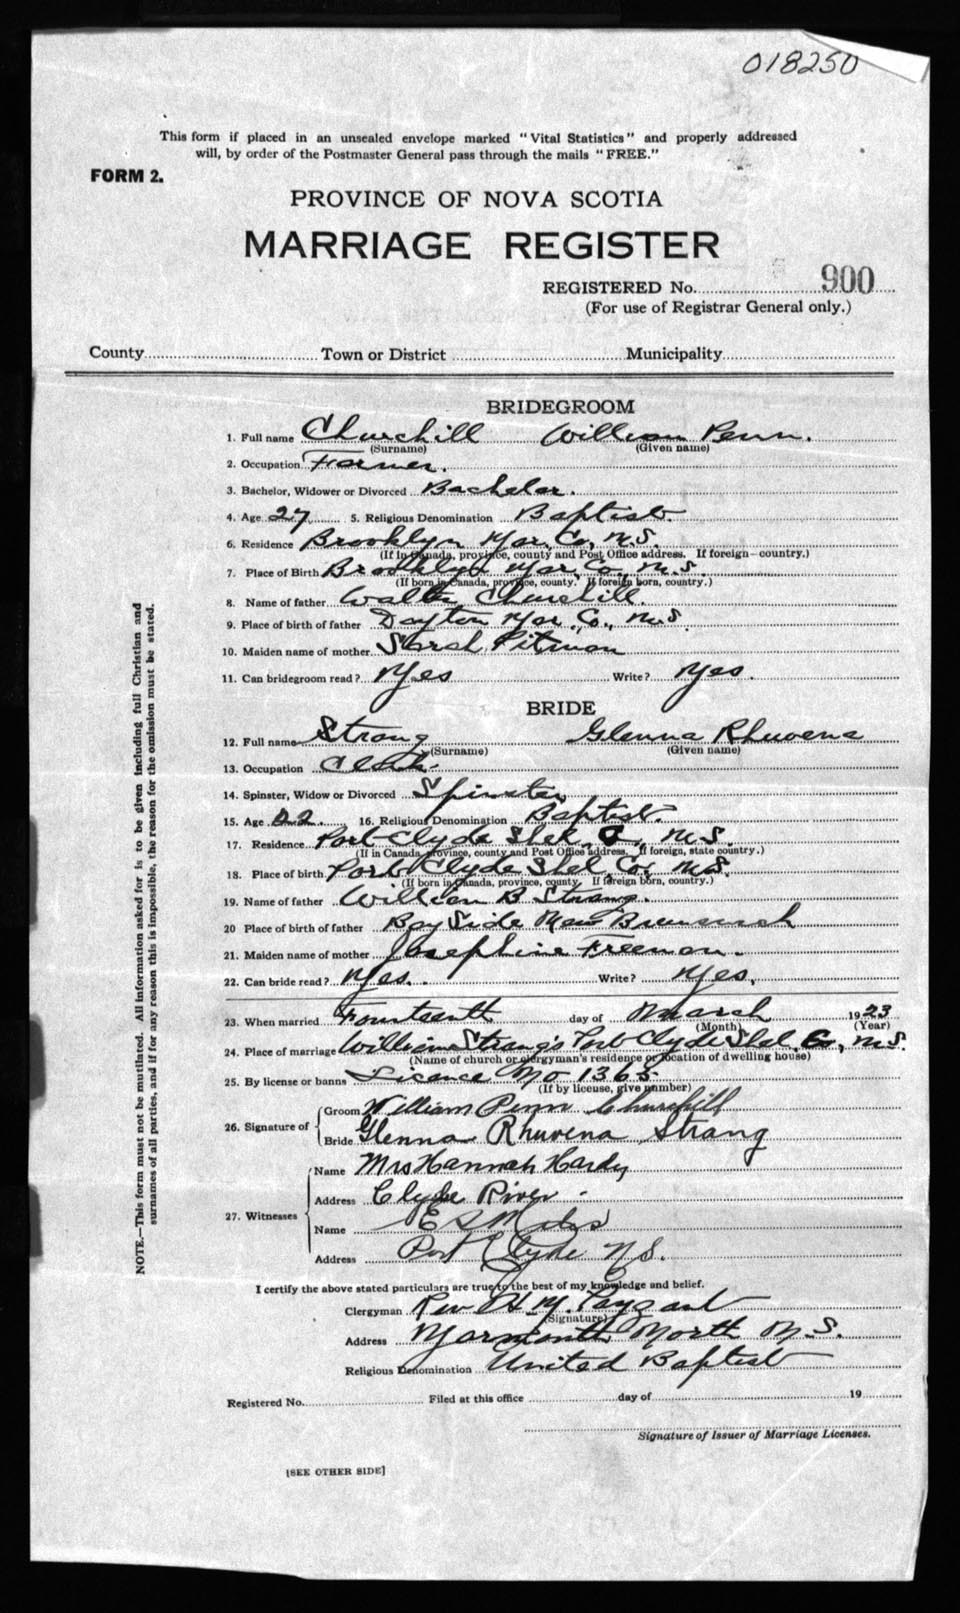 018250
This form if placed in an unsealed envelope marked "Vital Statistics" and properly addressed
will, by order of the Postmaster General pass through the mails "FREE."
FORM 2.
PROVINCE OF NOVA SCOTIA
MARRIAGE REGISTER
REGISTERED No. 900
(For use of Registrar General only.)
County Town or District Municipality
BRIDEGROOM
1. Full name Churchill William Penn.
(Surname) (Given name)
2. Occupation Farmer.
3. Bachelor, Widower or Divorced Bachelor.
4. Age 27 5. Religious Denomination Baptist.
6. Residence Brooklyn Yar, Co, N.S.
(If in Canada, province, county and Post Office address. If foreign—country.)
7. Place of Birth Brooklyn Yar, Co, N.S.
(If born in Canada, province, county. If foreign born, country.)
8. Name of father Walter Churchill.
9. Place of birth of father Dayton Yar, Co., N.S.
10. Maiden name of mother Sarah Pitman
11. Can bridegroom read? Yes Write? Yes.
BRIDE
12. Full name Strang Glenna Rhuvena
(Surname) (Given name)
13. Occupation Clerk.
14. Spinster, Widow or Divorced Spinster
15. Age 22 16. Religious Denomination Baptist.
17. Residence Port Clyde Shel, Co, N.S.
(If in Canada, province, county and Post Office address, If foreign, state country.)
18. Place of birth Port Clyde Shel, Co, N.S.
(If born in Canada, province, county If foreign born, country.)
19. Name of father William B Strang.
20 Place of birth of father Bay Side New Brunswick
21. Maiden name of mother Josephine Freeman.
22. Can bride read? Yes. Write? Yes,
23. When married Fourteenth day of March 1923
(Month) (Year)
24. Place of marriage William Strang's Port Clyde Shel, Co, N.S.
(Name of church or clergyman's residence or location of dwelling house)
25. By license or banns Licence No 1365
(If by license, give number)
26. Signature of
Groom William Penn Churchill
Bride Glenna Rhuvena Strang
27. Witnesses
Name Mrs Hannah Hardy
Address Clyde River.
Name E S
Address Port Clyde N.S.
I certify the above stated particulars are true to the best of my knowledge and belief.
Clergyman Rev H.M. Payzant
(Signature)
Address Yarmouth North N.S.
Religious Denomination United Baptist
Registered No. Filed at this office day of 19
Signature of Issuer of Marriage Licenses.
[SEE OTHER SIDE]
NOTE.—This form must not be mutilated. All information asked for is to be given including full Christian and
surnames of all parties, and if for any reason this is impossible, the reason for the omission must be stated.